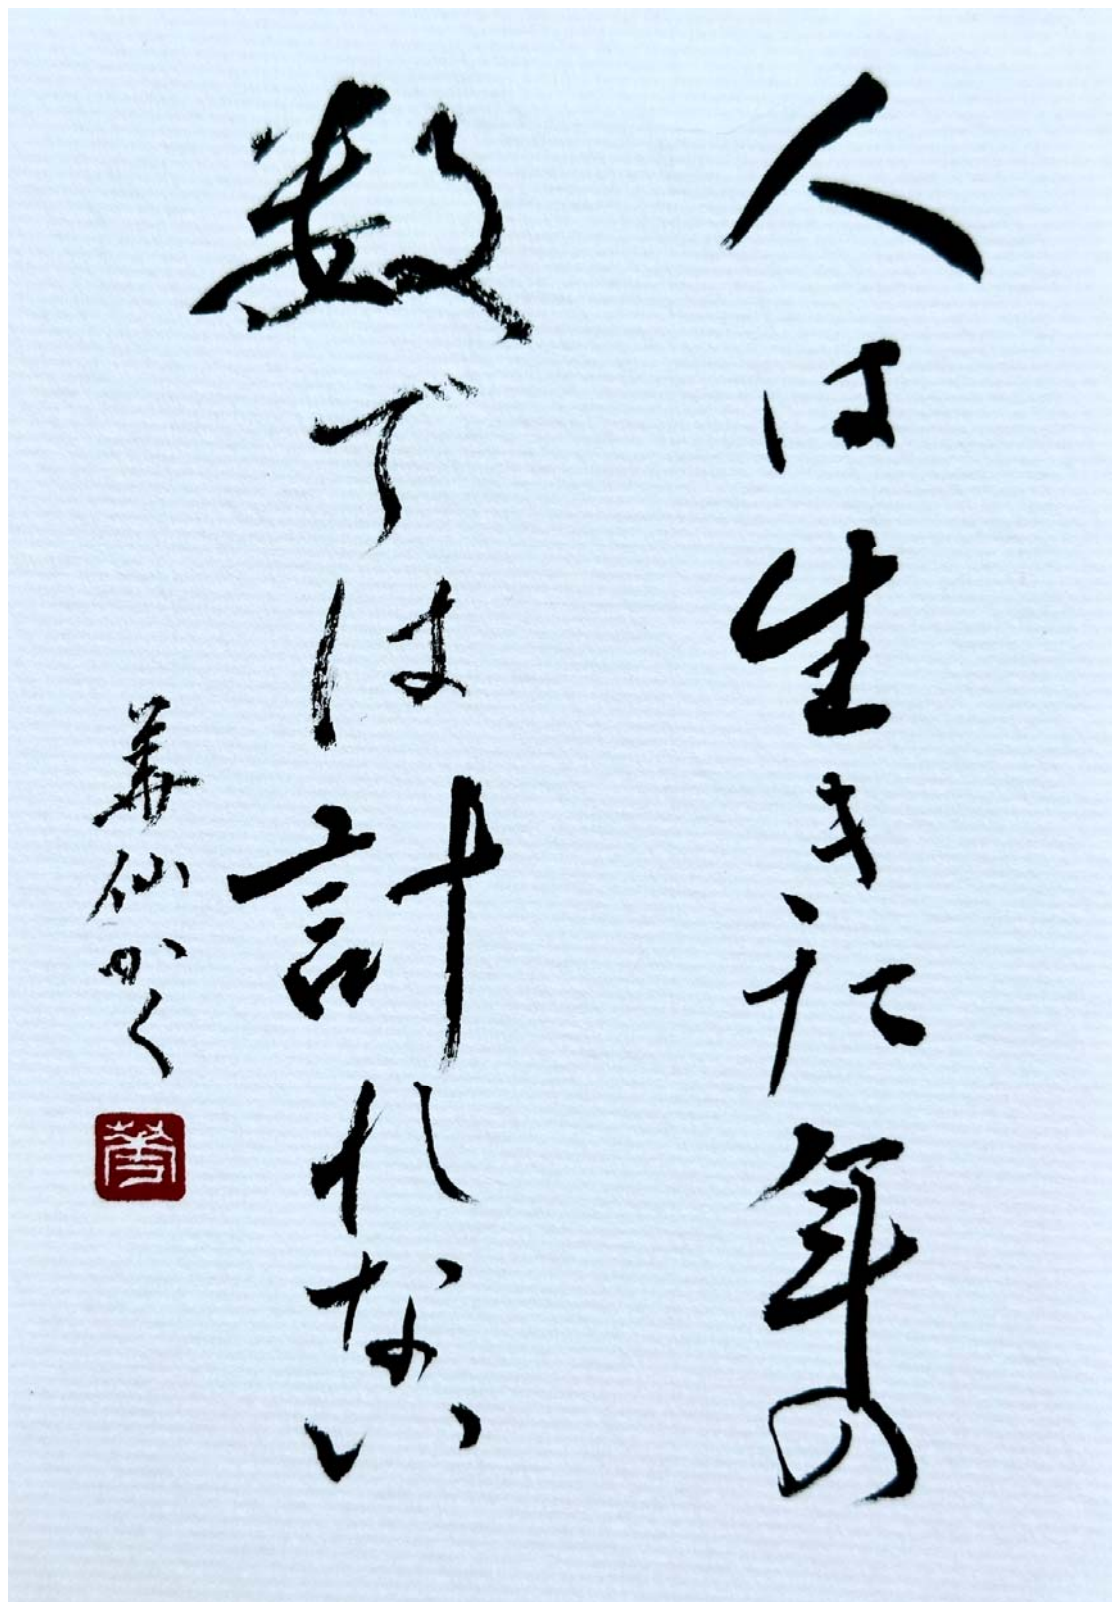 人は生きた年の
数では計れない
華仙かく
華